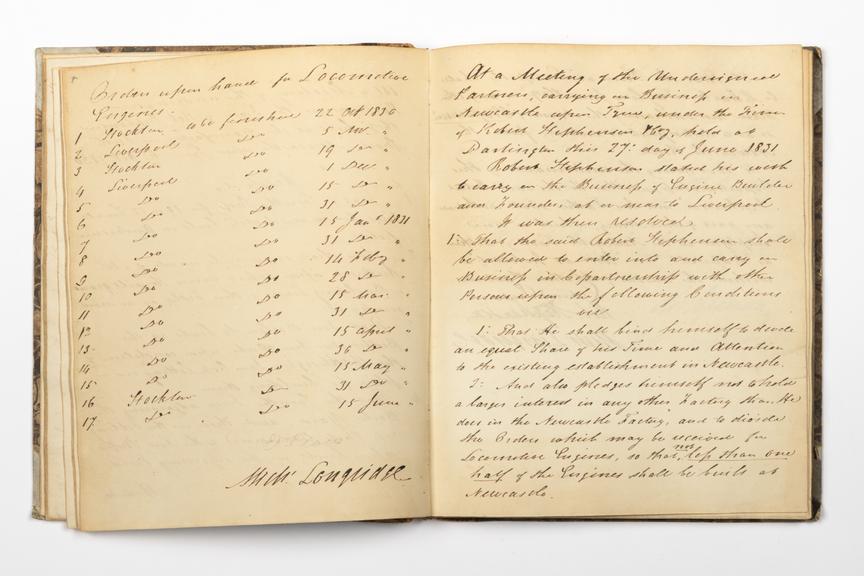 Orders upon hand for Locomotive
Engines.
1 Stockton to be furnished 22 Oct 1830
2 Liverpool Do 5 Nov "
3 Stockton Do 19 Do "
4 Liverpool Do 1 Dec "
5 Do Do 15 Do "
6 Do Do 31 Do "
7 Do Do 15 Jany 1831
8 Do Do 31 Do "
9 Do Do 14 Feby "
10 Do Do 28 Do "
11 Do Do 15 Mar "
12 Do Do 31 Do "
13 Do Do 15 April "
14 Do Do 30 Do "
15 Do Do 15 May "
16 Stockton Do 31 Do "
17 Do Do 15 June "
Michl Longridge
At a Meeting of the Undersigned
Partners, carrying on Business in
Newcastle upon Tyne, under the Firm
of Robert Stephenson & Co, held at
Darlington this 27th day of June 1831
Robert Stephenson stated his wish
to carry on the Business of Engine Builder
and Founder, at or near to Liverpool
It was then resolved
1: That the said Robert Stephenson shall
be allowed to enter into and carry on
Business in Copartnership with other
Persons upon the following Conditions
viz
1: That He shall bind himself to devote
an equal Share of his Time and Attention
to the existing establishment in Newcastle.
2: And also pledges himself not to hold
a larger interest in any other Factory than He
does in the Newcastle Factory, and to divide
the Orders which may be received for
Locomotive Engines, so that not less than one
half of the Engines shall be built at
Newcastle.